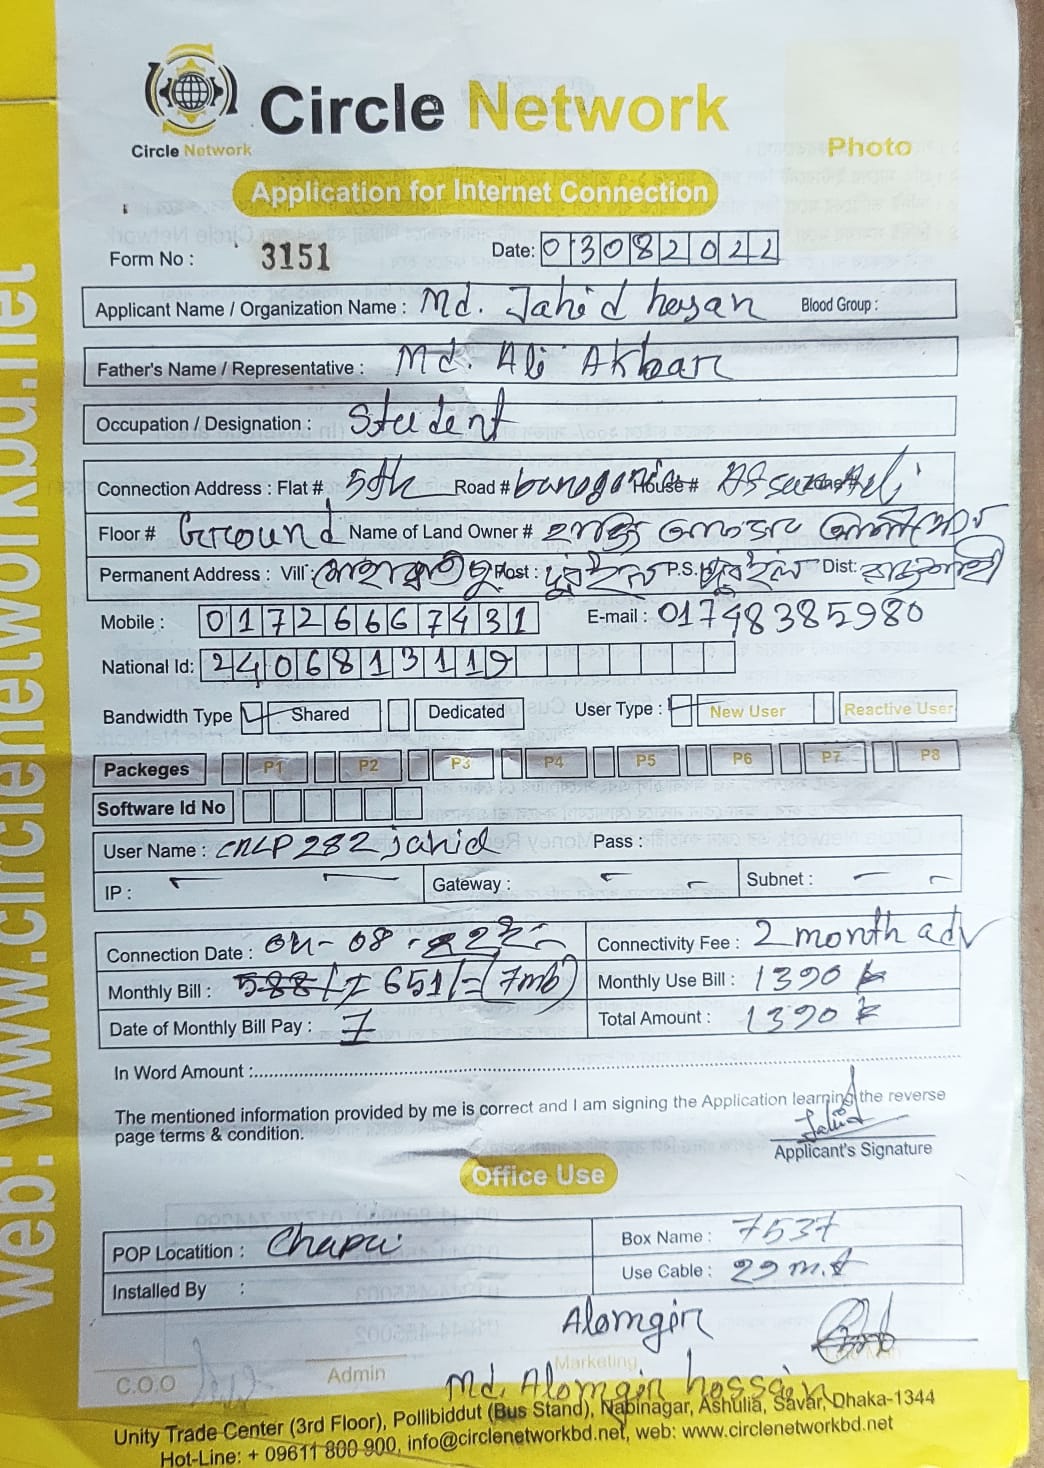 Circle Network
Circle Network
Photo
Application for Internet Connection
Form No : 3151 Date: 03082022
Applicant Name / Organization Name : Md. Jahid hasan Blood Group :
Father's Name / Representative : Md. Ali Akbar
Occupation / Designation : Student
Connection Address : Flat # 5th Road # House #
Floor # Ground Name of Land Owner #
Permanent Address : Vill : Post : P.S. Dist:
Mobile : 01726667431 E-mail : 01748385980
National Id: 2406813119
Bandwidth Type Shared Dedicated User Type : New User Reactive User
Packeges P1 P2 P3 P4 P5 P6 P7 P8
Software Id No
User Name : CNLP282jahid Pass :
IP : Gateway : Subnet :
Connection Date : 04-08- Connectivity Fee : 2 month adv
Monthly Bill : 588/= 651/=(7mb) Monthly Use Bill : 1390
Date of Monthly Bill Pay : 7 Total Amount : 1390
In Word Amount :
The mentioned information provided by me is correct and I am signing the Application learning the reverse
page terms & condition.
Jahid
Applicant's Signature
Office Use
POP Locatition : Box Name : 7537
Installed By : Use Cable : 29 m.t
Alomgir
C.O.O Admin Marketing
Md. Alomgir hossain
Unity Trade Center (3rd Floor), Pollibiddut (Bus Stand), Nabinagar, Ashulia, Savar, Dhaka-1344
Hot-Line: + 09611 800 900, info@circlenetworkbd.net, web: www.circlenetworkbd.net
web: www.circlenetworkbd.net